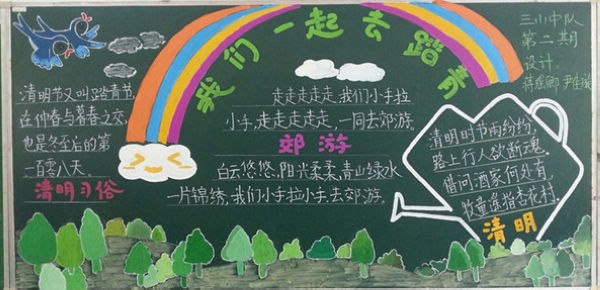 我们一起去踏青
三小中队
第二期
设计:
清明节又叫踏青节,
在仲春与暮春之交,
也是冬至后的第
一百零八天。
清明习俗
走走走走走,我们小手拉
小手,走走走走走,一同去郊游。
郊游
白云悠悠,阳光柔柔,青山绿水
一片锦绣,我们小手拉小手,去郊游。
清明时节雨纷纷,
路上行人欲断魂。
借问酒家何处有,
牧童遥指杏花村。
清明